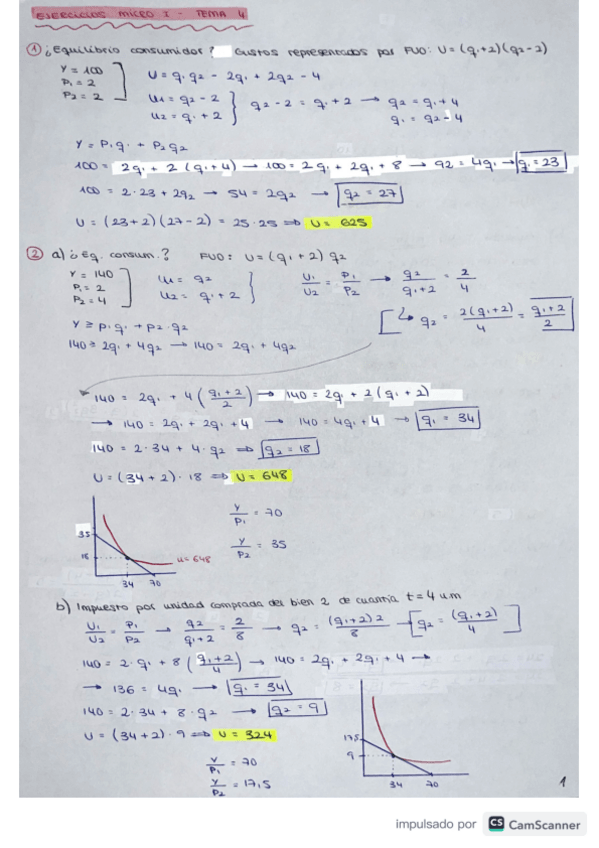 EJERCICIOS MICRO I - TEMA 4
① ¿Equilibrio consumidor? Gustos representados por FUO: U = (q₁+2)(q₂-2)
Y = 100
P₁ = 2
P₂ = 2
U = q₁q₂ - 2q₁ + 2q₂ - 4
U₁ = q₂ - 2
U₂ = q₁ + 2
q₂ - 2 = q₁ + 2 → q₂ = q₁ + 4
q₁ = q₂ - 4
Y = P₁q₁ + P₂q₂
100 = 2q₁ + 2(q₁+4) → 100 = 2q₁ + 2q₁ + 8 → 92 = 4q₁ → q₁ = 23
100 = 2·23 + 2q₂ → 54 = 2q₂ → q₂ = 27
U = (23+2)(27-2) = 25·25 ⇒ U = 625
② a) ¿Eq. consum.? FUO: U = (q₁+2) q₂
Y = 140
P₁ = 2
P₂ = 4
U₁ = q₂
U₂ = q₁ + 2
U₁/U₂ = P₁/P₂ → q₂/(q₁+2) = 2/4
↳ q₂ = 2(q₁+2)/4 = (q₁+2)/2
Y ≥ P₁q₁ + P₂·q₂
140 ≥ 2q₁ + 4q₂ → 140 = 2q₁ + 4q₂
140 = 2q₁ + 4((q₁+2)/2) → 140 = 2q₁ + 2(q₁+2)
→ 140 = 2q₁ + 2q₁ + 4 → 140 = 4q₁ + 4 → q₁ = 34
140 = 2·34 + 4·q₂ ⇒ q₂ = 18
U = (34+2)·18 ⇒ U = 648
Y/P₁ = 70
Y/P₂ = 35
35
18
U = 648
34 70
b) Impuesto por unidad comprada del bien 2 de cuantía t = 4 u.m
U₁/U₂ = P₁/P₂ → q₂/(q₁+2) = 2/8 → q₂ = (q₁+2)2/8 → q₂ = (q₁+2)/4
140 = 2·q₁ + 8((q₁+2)/4) → 140 = 2q₁ + 2q₁ + 4 →
→ 136 = 4q₁ → q₁ = 34
140 = 2·34 + 8·q₂ → q₂ = 9
U = (34+2)·9 ⇒ U = 324
Y/P₁ = 70
Y/P₂ = 17,5
17,5
9
34 70
1
impulsado por CS CamScanner